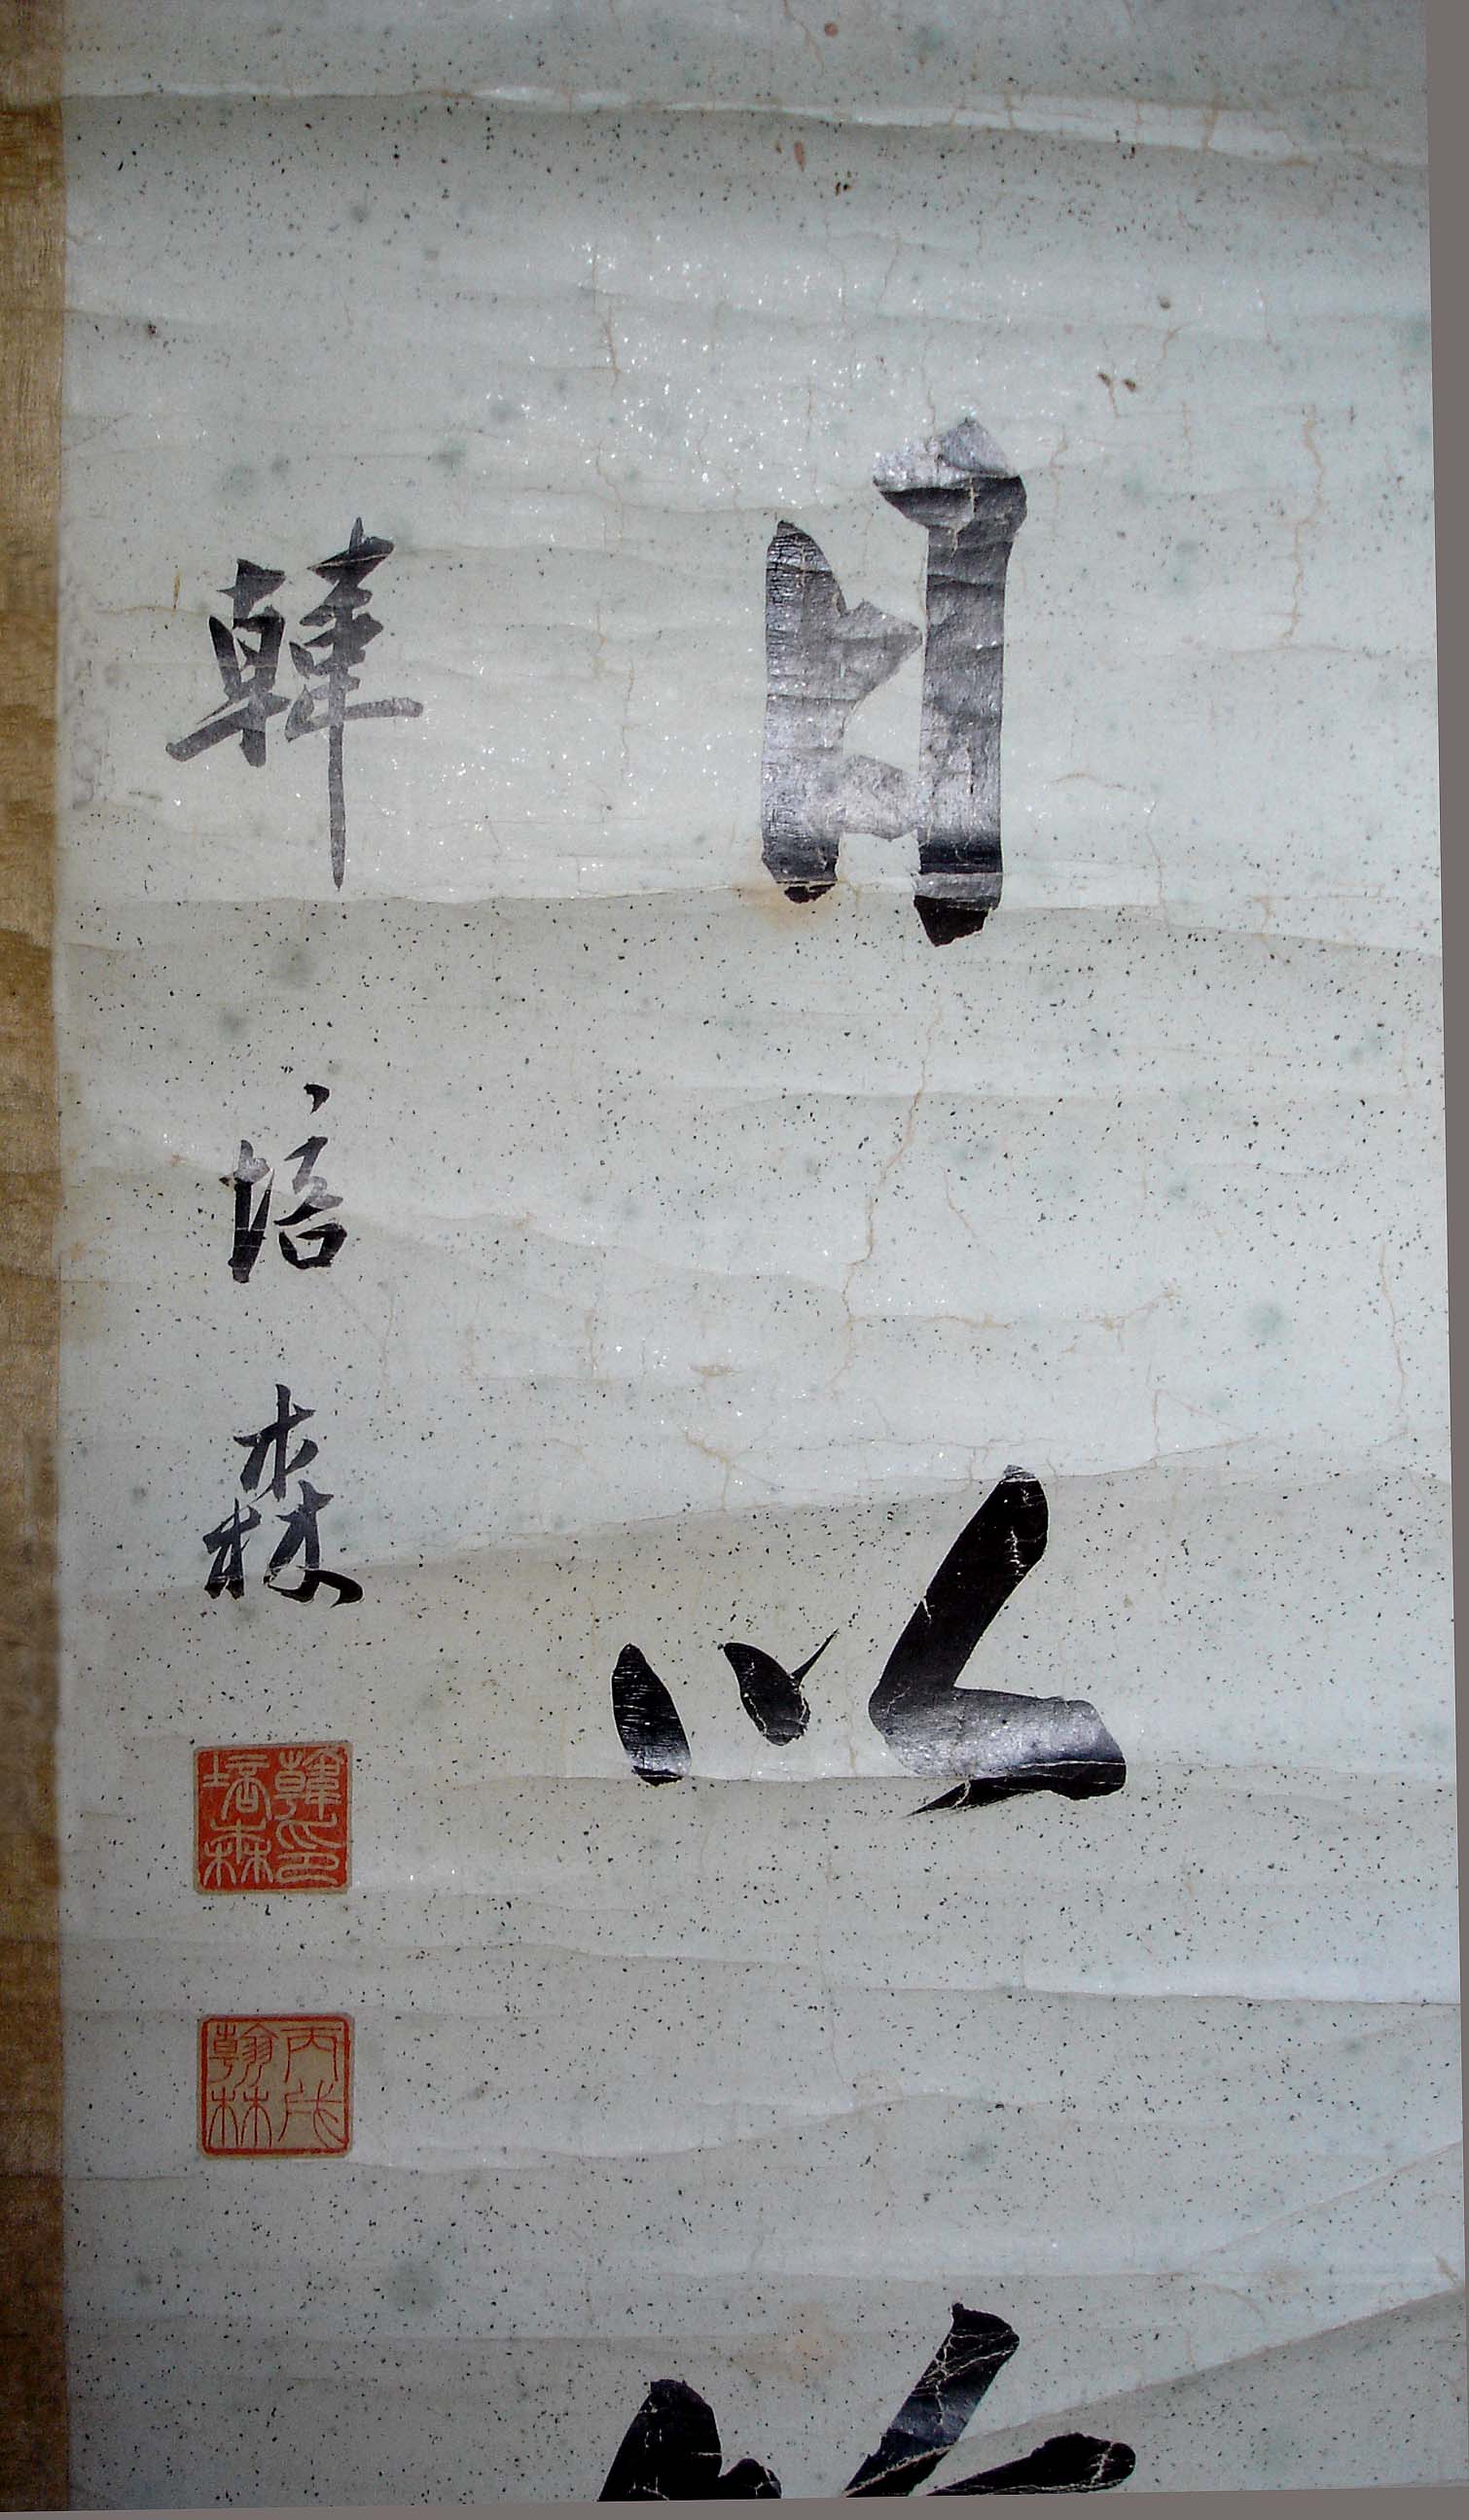 日以
韓培森
韓印培森
丙戌翰林